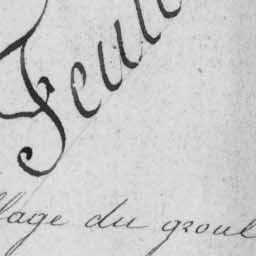 Feuil
llage du groul